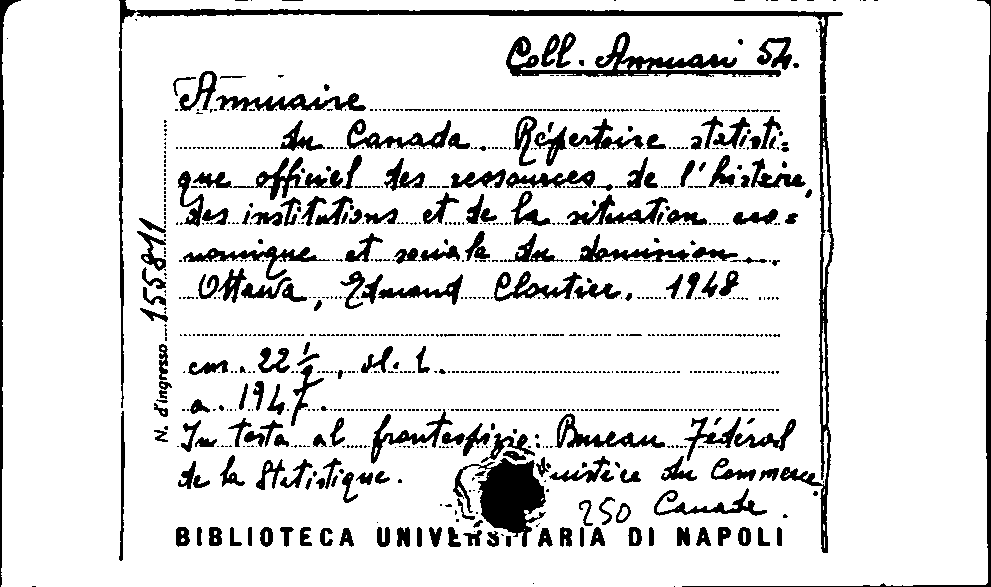 Coll. Annuari 54.
Annuaire
du Canada. Répertoire statisti=
que officiel des ressources, de l'histoire,
des institutions et de la situation eco=
nomique et sociale du dominion...
Ottawa, Edmond Cloutier, 1948
cm. 22 ½, sl. t.
a. 1947.
In testa al frontespizio: Bureau Fédéral
de la Statistique. du Commerce
250 Canada.
BIBLIOTECA UNIVERSITARIA DI NAPOLI
N. d'ingresso 155811